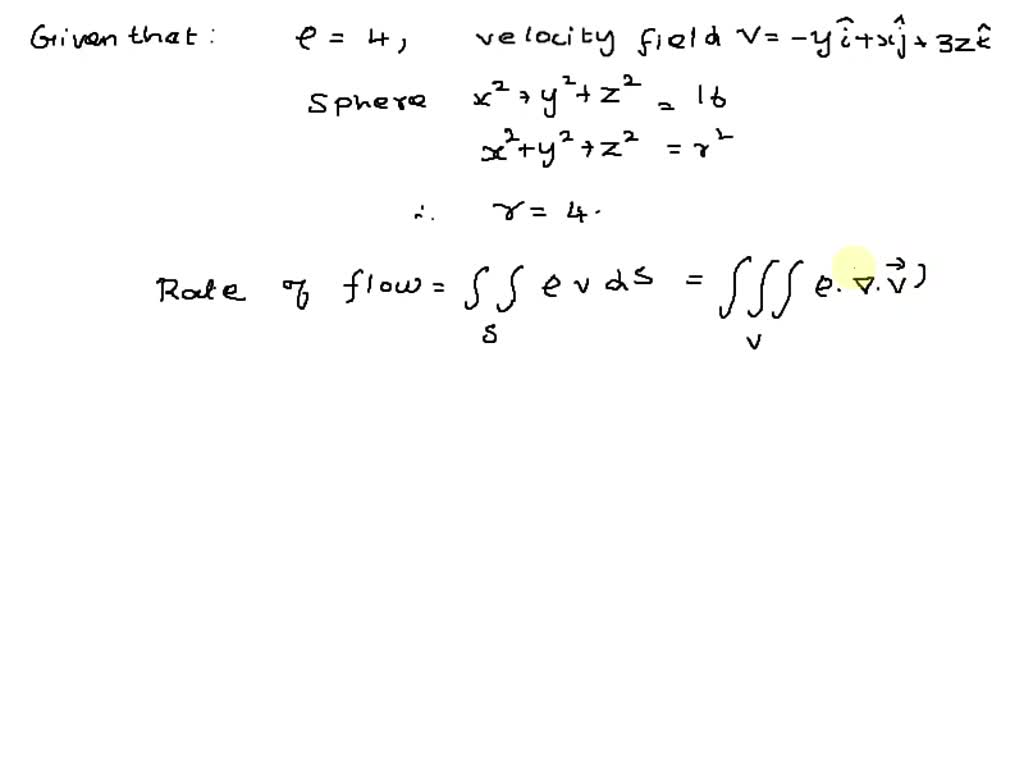 Given that: ρ = 4, velocity field V = -yî+xĵ+3zk̂
Sphere x²+y²+z² = 16
x²+y²+z² = r²
∴ r = 4.
Rate of flow = ∫∫_S ρ v ds = ∫∫∫_V ρ.∇.v⃗)